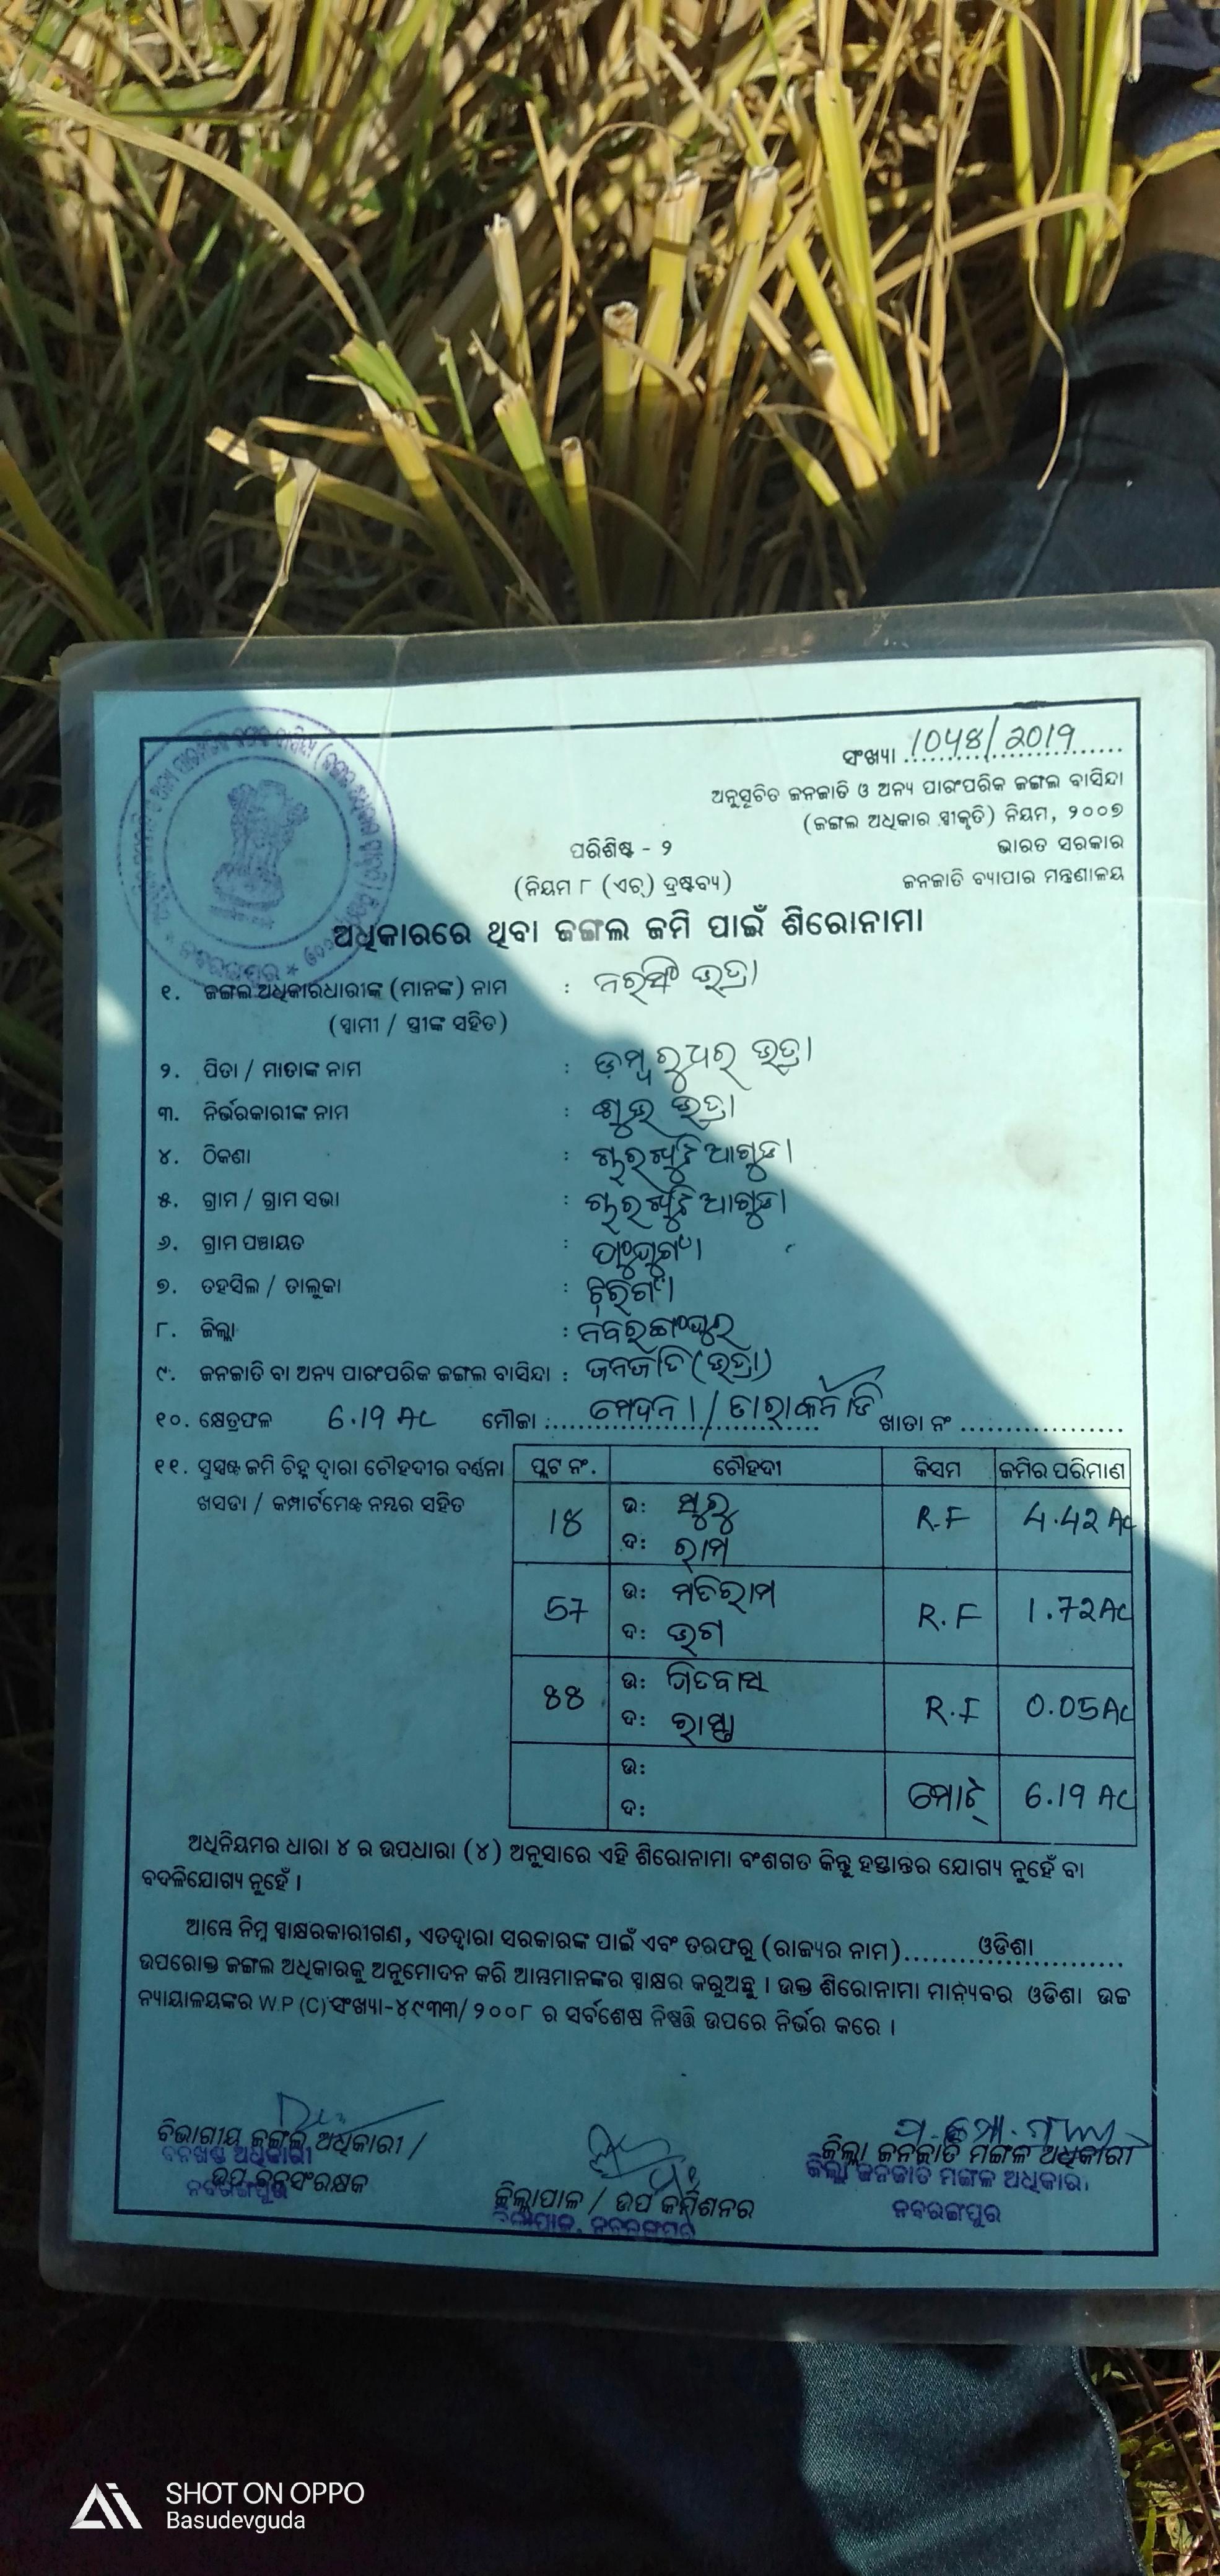 ସଂଖ୍ୟା 1048/2019
ଅନୁସୂଚିତ ଜନଜାତି ଓ ଅନ୍ୟ ପାରଂପରିକ ଜଙ୍ଗଲ ବାସିନ୍ଦା
(ଜଙ୍ଗଲ ଅଧିକାର ସ୍ୱୀକୃତି) ନିୟମ, ୨୦୦୭
ପରିଶିଷ୍ଟ - ୨ ଭାରତ ସରକାର
(ନିୟମ ୮ (ଏଚ୍) ଦ୍ରଷ୍ଟବ୍ୟ) ଜନଜାତି ବ୍ୟାପାର ମନ୍ତ୍ରଣାଳୟ
ଅଧିକାରରେ ଥିବା ଜଙ୍ଗଲ ଜମି ପାଇଁ ଶିରୋନାମା
୧. ଜଙ୍ଗଲ ଅଧିକାରଧାରୀଙ୍କ (ମାନଙ୍କ) ନାମ : ଭତ୍ରା
(ସ୍ୱାମୀ / ସ୍ତ୍ରୀଙ୍କ ସହିତ)
୨. ପିତା / ମାତାଙ୍କ ନାମ : ଡମ୍ବରୁଧର ଭତ୍ରା
୩. ନିର୍ଭରକାରୀଙ୍କ ନାମ : ଭତ୍ରା
୪. ଠିକଣା :
୫. ଗ୍ରାମ / ଗ୍ରାମ ସଭା :
୬. ଗ୍ରାମ ପଞ୍ଚାୟତ :
୭. ତହସିଲ / ତାଲୁକା :
୮. ଜିଲ୍ଲା : ନବରଙ୍ଗପୁର
୯. ଜନଜାତି ବା ଅନ୍ୟ ପାରଂପରିକ ଜଙ୍ଗଲ ବାସିନ୍ଦା : ଜନଜାତି (ଭତ୍ରା)
୧୦. କ୍ଷେତ୍ରଫଳ 6.19 AC ମୌଜା : ଖାତା ନଂ
୧୧. ସୁସ୍ପଷ୍ଟ ଜମି ଚିହ୍ନ ଦ୍ୱାରା ଚୌହଦୀର ବର୍ଣ୍ଣନା ପ୍ଲଟ ନଂ. ଚୌହଦୀ କିସମ ଜମିର ପରିମାଣ
ଖସଡା / କମ୍ପାର୍ଟମେଣ୍ଟ ନମ୍ବର ସହିତ
18 ଉ: R.F 4.42 AC
ଦ: ରାମ
57 ଉ: ମତିରାମ R.F 1.72 AC
ଦ: ଭଗ
88 ଉ: R.F 0.05 AC
ଦ: ରାସ୍ତା
ଉ: ମୋଟ୍ 6.19 AC
ଦ:
ଅଧିନିୟମର ଧାରା ୪ ର ଉପଧାରା (୪) ଅନୁସାରେ ଏହି ଶିରୋନାମା ବଂଶଗତ କିନ୍ତୁ ହସ୍ତାନ୍ତର ଯୋଗ୍ୟ ନୁହେଁ ବା
ବଦଳିଯୋଗ୍ୟ ନୁହେଁ ।
ଆମ୍ଭେ ନିମ୍ନ ସ୍ୱାକ୍ଷରକାରୀଗଣ, ଏତଦ୍ୱାରା ସରକାରଙ୍କ ପାଇଁ ଏବଂ ତରଫରୁ (ରାଜ୍ୟର ନାମ) ଓଡିଶା
ଉପରୋକ୍ତ ଜଙ୍ଗଲ ଅଧିକାରକୁ ଅନୁମୋଦନ କରି ଆମ୍ଭମାନଙ୍କର ସ୍ୱାକ୍ଷର କରୁଅଛୁ । ଉକ୍ତ ଶିରୋନାମା ମାନ୍ୟବର ଓଡିଶା ଉଚ୍ଚ
ନ୍ୟାୟାଳୟଙ୍କର W.P (C) ସଂଖ୍ୟା-୪୯୩୩/୨୦୦୮ ର ସର୍ବଶେଷ ନିଷ୍ପତ୍ତି ଉପରେ ନିର୍ଭର କରେ ।
ବିଭାଗୀୟ ଜଙ୍ଗଲ ଅଧିକାରୀ /
ବନଖଣ୍ଡ ଅଧିକାରୀ
ଉପ ବନସଂରକ୍ଷକ
ନବରଙ୍ଗପୁର
ଜିଲ୍ଲାପାଳ / ଉପ କମିଶନର
ଜିଲ୍ଲାପାଳ, ନବରଙ୍ଗପୁର
ଜିଲ୍ଲା ଜନଜାତି ମଙ୍ଗଳ ଅଧିକାରୀ
ଜିଲ୍ଲା ଜନଜାତି ମଙ୍ଗଳ ଅଧିକାରୀ
ନବରଙ୍ଗପୁର
SHOT ON OPPO
Basudevguda